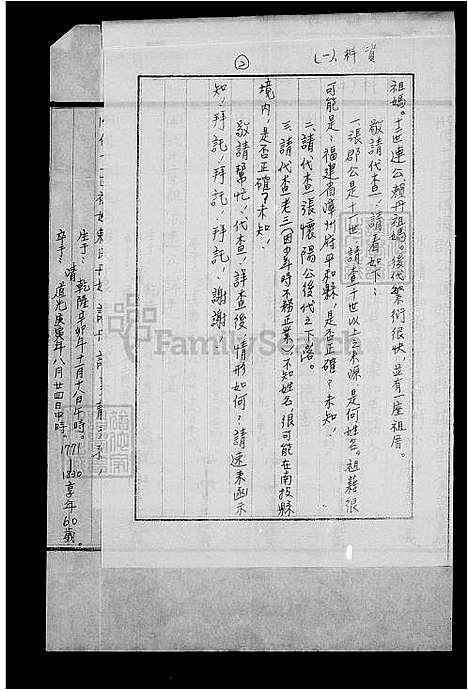 資料(一)
②
祖媽。十三世連公、賴丹祖媽。後代繁衍很快，並有一座祖厝。
敬請代查，請看如下：
一、張郡公是十一世，請查十世以上之來源，是何姓名。祖籍很
可能是：福建省漳州府平和縣，是否正確？未知！
二、請代查張懷陽公後代之下落。
三、請代查老三（因少年時不務正業）不知姓名，很可能在南投縣
境內，是否正確？未知！
敬請幫忙！代查！詳查後、情形如何？請速來函示
知！拜託！拜託！拜託！謝謝！
生于：乾隆辛卯年十月十八日午時。1771
卒于：清道光庚寅年八月廿四日申時。1830享年60歲。
FamilySearch